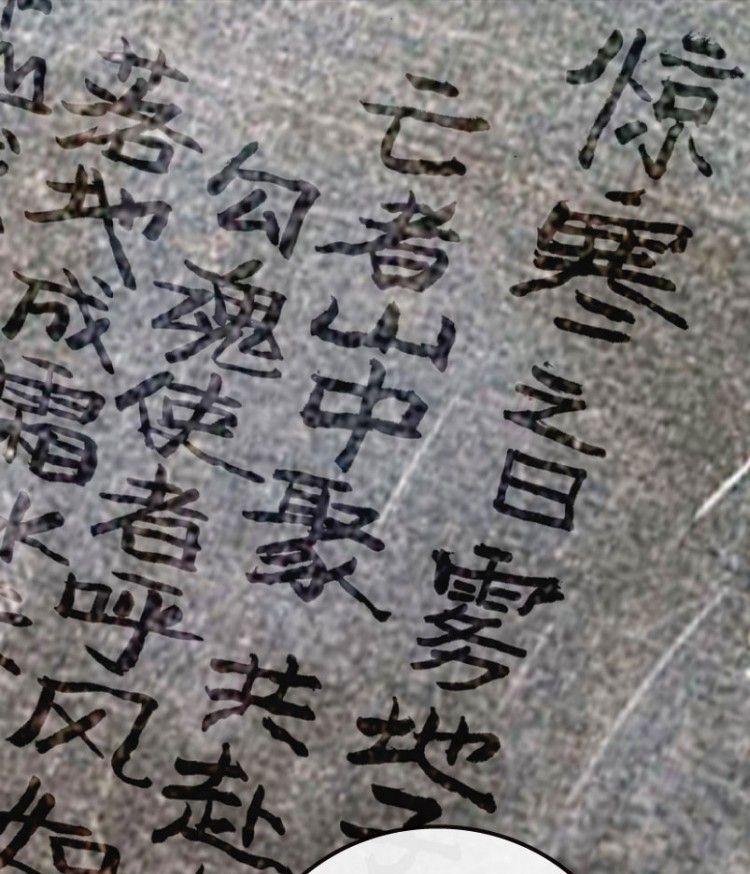 惊寒之日雾地
亡者山中聚共赴
勾魂使者呼风
落地成霜